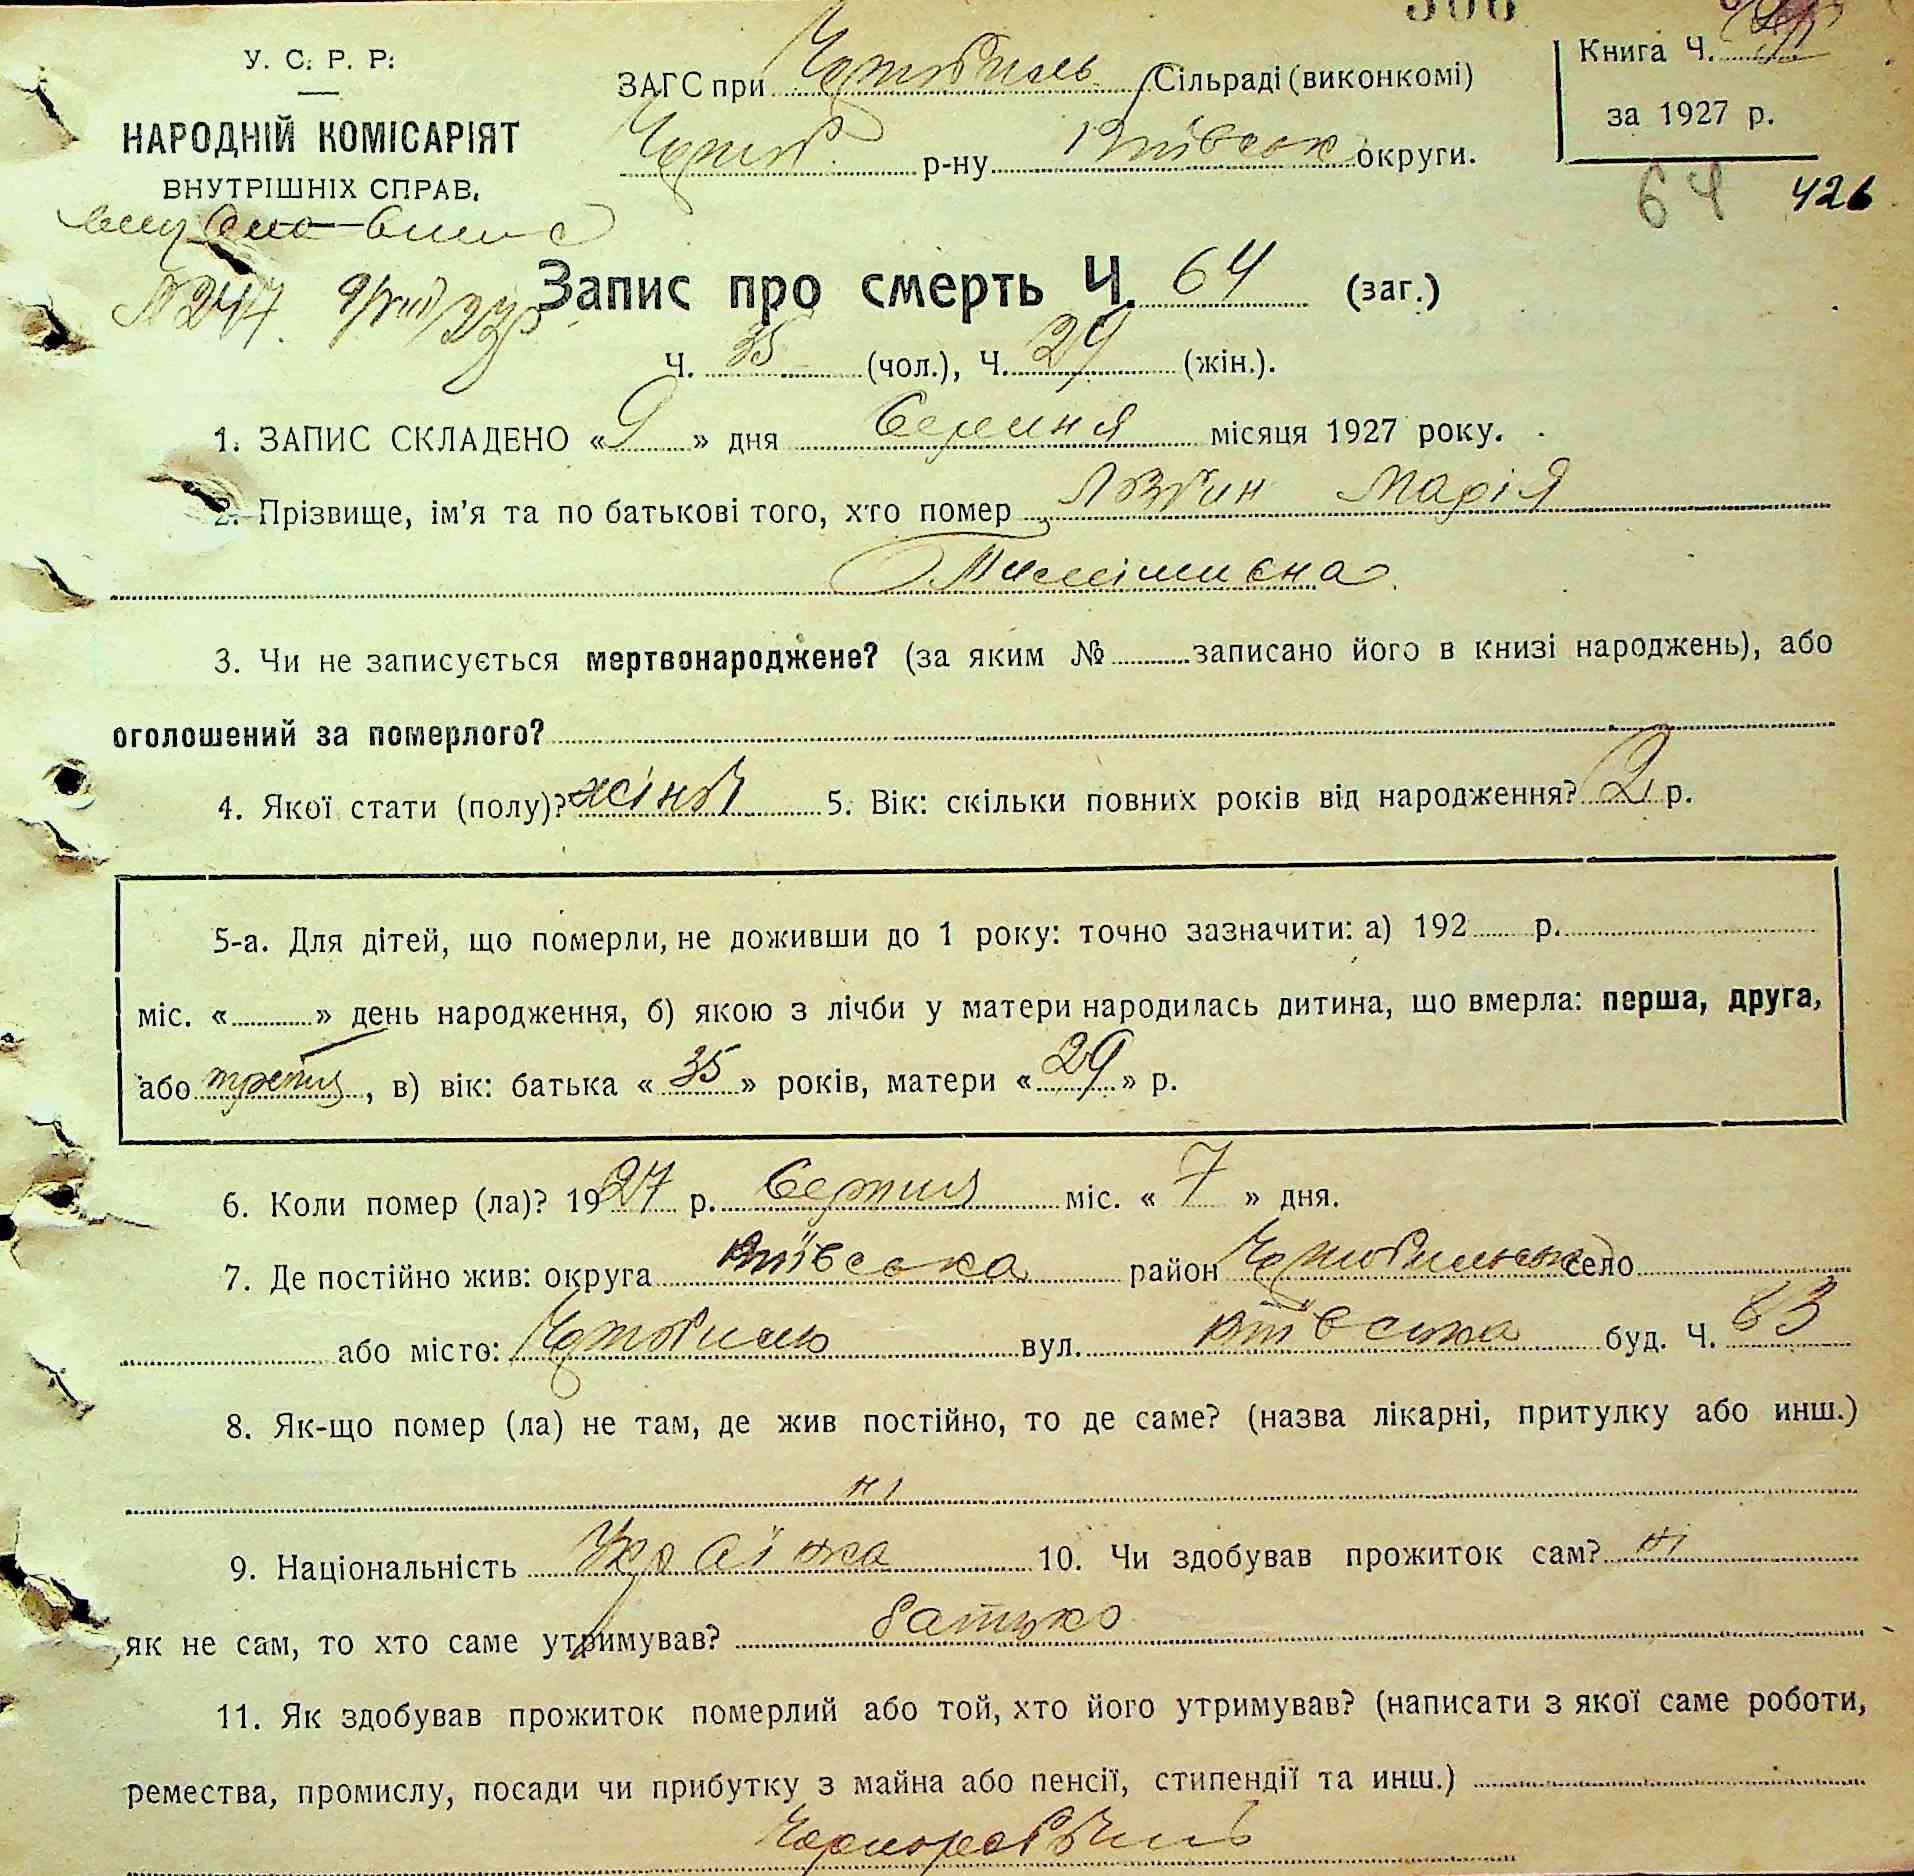 У. С. Р. Р.
НАРОДНІЙ КОМІСАРІЯТ
ВНУТРІШНІХ СПРАВ.
ЗАГС при Чорнобиль Сільраді (виконкомі)
Чорноб. р-ну Київськ округи.
Книга Ч.
за 1927 р.
64 426
N 247. 9/VIII 27 р
Запис про смерть Ч. 64 (заг.)
Ч. 35 (чол.), Ч. 29 (жін.).
1. ЗАПИС СКЛАДЕНО «9» дня Серпня місяця 1927 року.
2. Прізвище, ім'я та по батькові того, хто помер Марія
3. Чи не записується мертвонароджене? (за яким № записано його в книзі народжень), або
оголошений за померлого?
4. Якої стати (полу)? 5. Вік: скільки повних років від народження? 2 р.
5-а. Для дітей, що померли, не доживши до 1 року: точно зазначити: а) 192 р.
міс. « » день народження, б) якою з лічби у матери народилась дитина, що вмерла: перша, друга,
або третя, в) вік: батька «35» років, матери «29» р.
6. Коли помер (ла)? 1927 р. Серпня міс. «7» дня.
7. Де постійно жив: округа Київська район Чорнобильськ село
або місто: Чорнобиль вул. Київська буд. Ч. 83
8. Як-що помер (ла) не там, де жив постійно, то де саме? (назва лікарні, притулку або инш.)
ні
9. Національність Українка 10. Чи здобував прожиток сам? ні
як не сам, то хто саме утримував? батько
11. Як здобував прожиток померлий або той, хто його утримував? (написати з якої саме роботи,
ремества, промислу, посади чи прибутку з майна або пенсії, стипендії та инш.)
Чорноробочий